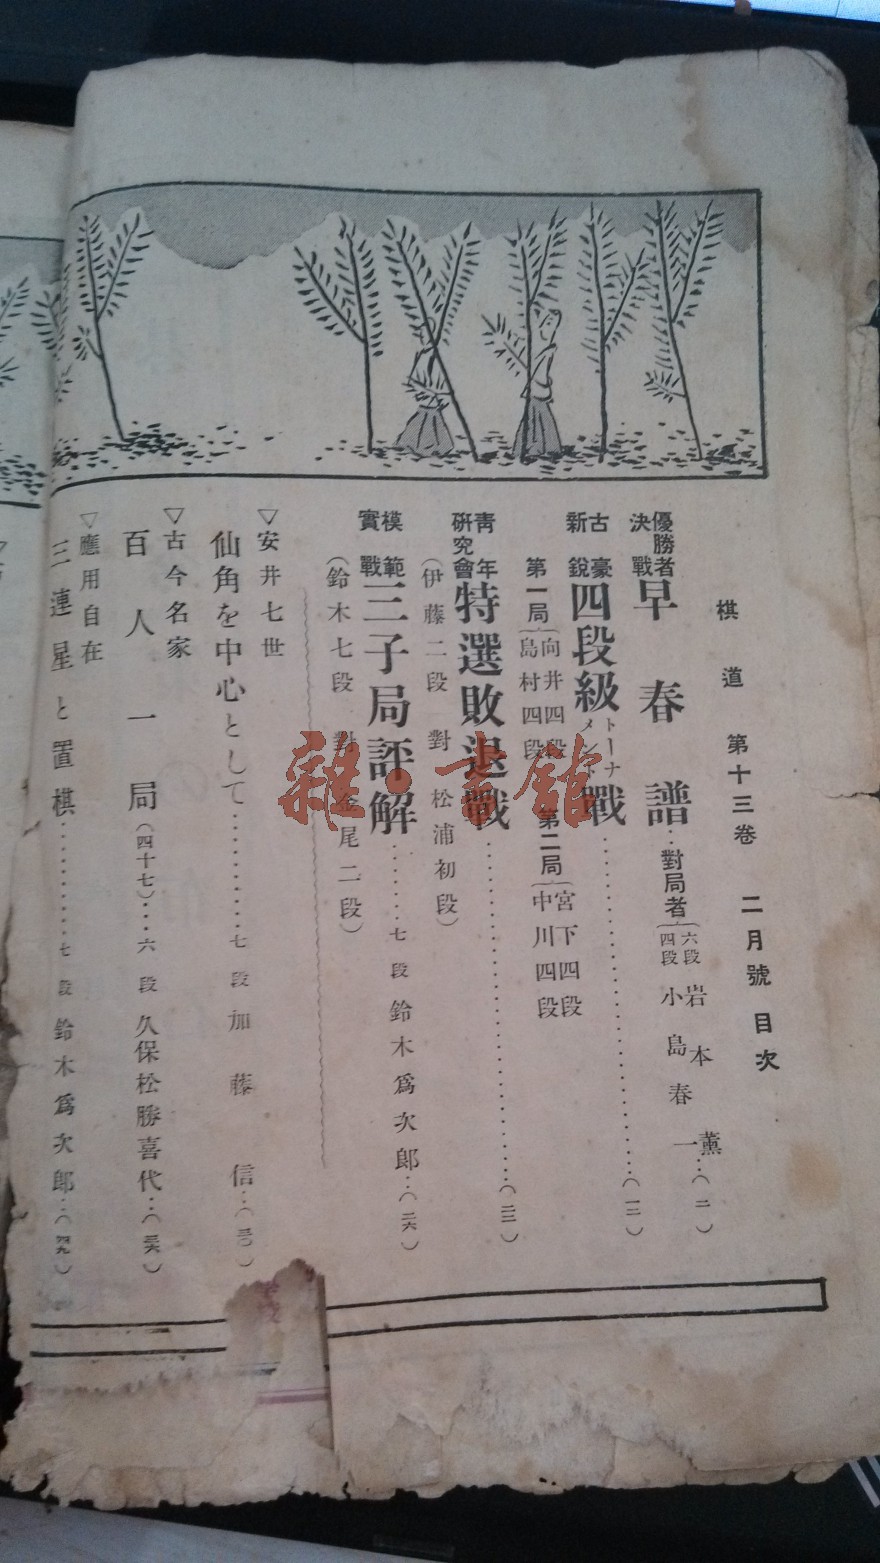 棋道 第十三卷 二月號 目次
優勝者
決戰
早春譜‥對局者
六段 岩本薫‥(二)
四段 小島春一
古豪
新銳
四段級
トーナ
メント
戰‥‥‥‥(一二)
第一局
向井四段
島村四段
第二局
宮下四段
中川四段
靑年
硏究會
特選敗退戰‥‥‥‥(二二)
(伊藤二段 對 松浦初段)
模範
實戰
三子局評解‥‥‥‥七段 鈴木爲次郎‥(二六)
(鈴木七段 對 金尾二段)
▽安井七世
仙角を中心として‥‥‥‥七段 加藤信‥(三〇)
▽古今名家
百人一局(四十七)‥六段 久保松勝喜代‥(三六)
▽應用自在
三連星と置棋‥‥‥‥七段 鈴木爲次郎‥(四九)
雜·書館